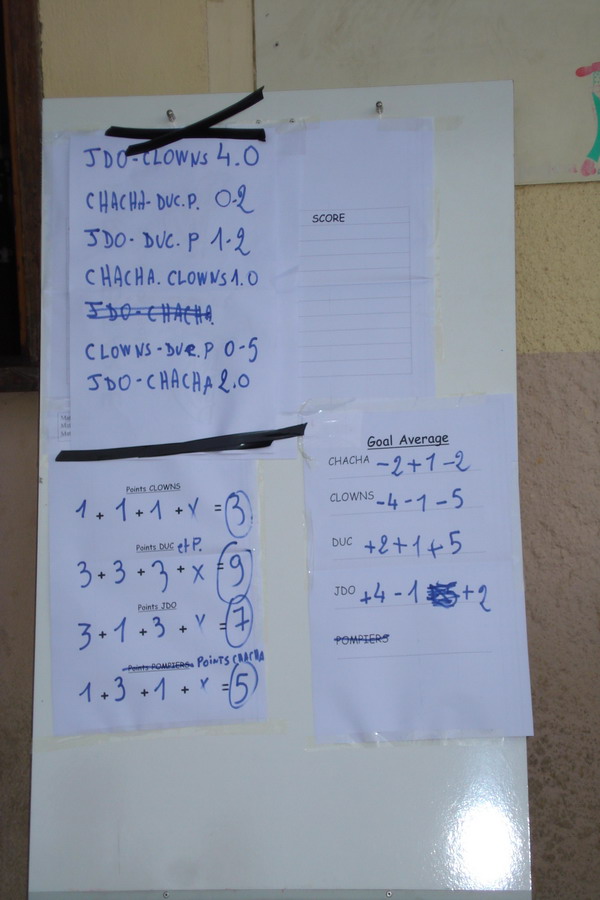 JDO-CLOWNS 4.0
CHACHA-DUC.P. 0-2
JDO-DUC.P 1-2
CHACHA.CLOWNS 1.0
JDO-CHACHA
CLOWNS-DUC.P 0-5
JDO-CHACHA 2.0
SCORE
Points CLOWNS
1 + 1 + 1 + x = 3
Points DUC et P.
3 + 3 + 3 + x = 9
Points JDO
3 + 1 + 3 + x = 7
Points POMPIERS POINTS CHACHA
1 + 3 + 1 + x = 5
Goal Average
CHACHA -2+1-2
CLOWNS -4-1-5
DUC +2+1+5
JDO +4-1 +2
POMPIERS